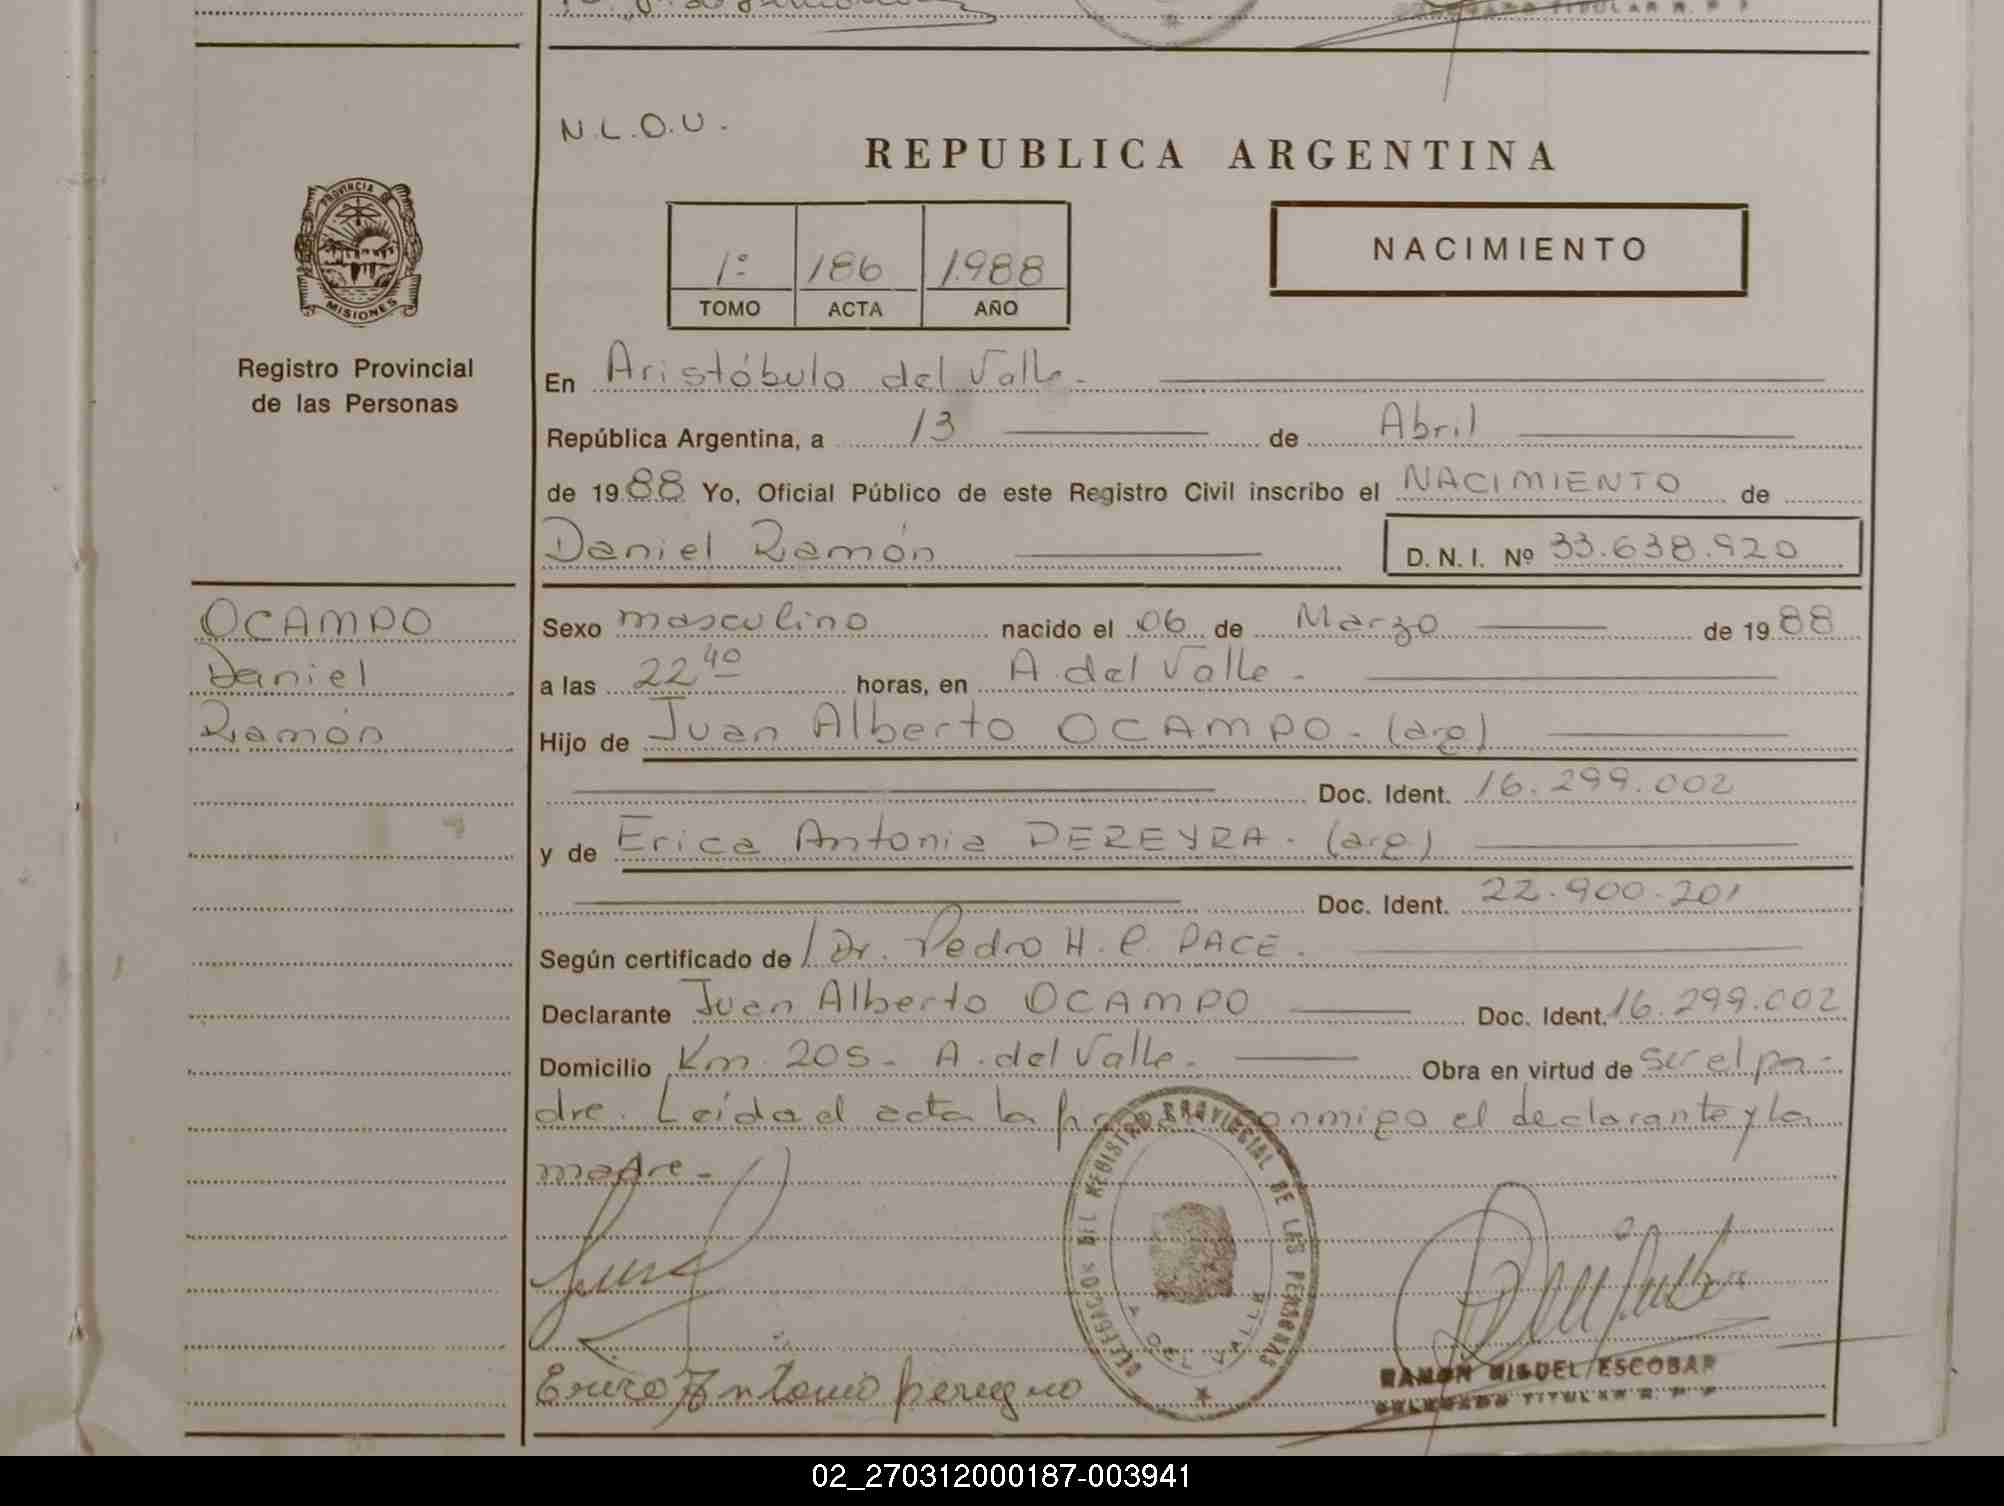 N.L.O.U.
REPUBLICA ARGENTINA
PROVINCIA DE
MISIONES
Registro Provincial
de las Personas
1º 186 1.988
TOMO ACTA AÑO
NACIMIENTO
En Aristóbulo del Valle.
República Argentina, a 13 de Abril
de 1988 Yo, Oficial Público de este Registro Civil inscribo el NACIMIENTO de
Daniel Ramón D. N. I. Nº 33.638.920
OCAMPO
Daniel
Ramón
Sexo masculino nacido el 06 de Marzo de 1988
a las 22 40 horas, en A. del Valle.
Hijo de Juan Alberto OCAMPO. (arg)
Doc. Ident. 16.299.002
y de Erica Antonia PEREYRA. (arg)
Doc. Ident. 22.900.201
Según certificado de Dr. Pedro H. C. PACE.
Declarante Juan Alberto OCAMPO Doc. Ident. 16.299.002
Domicilio Km. 205 - A. del Valle. Obra en virtud de ser el pa-
dre. Leída el acta la conmigo el declarante y la
madre -
DELEGACION DEL REGISTRO PROVINCIAL DE LAS PERSONAS
A. DEL VALLE
RAMON MIGUEL ESCOBAR
DELEGADO TITULAR R. P. P.
02_270312000187-003941